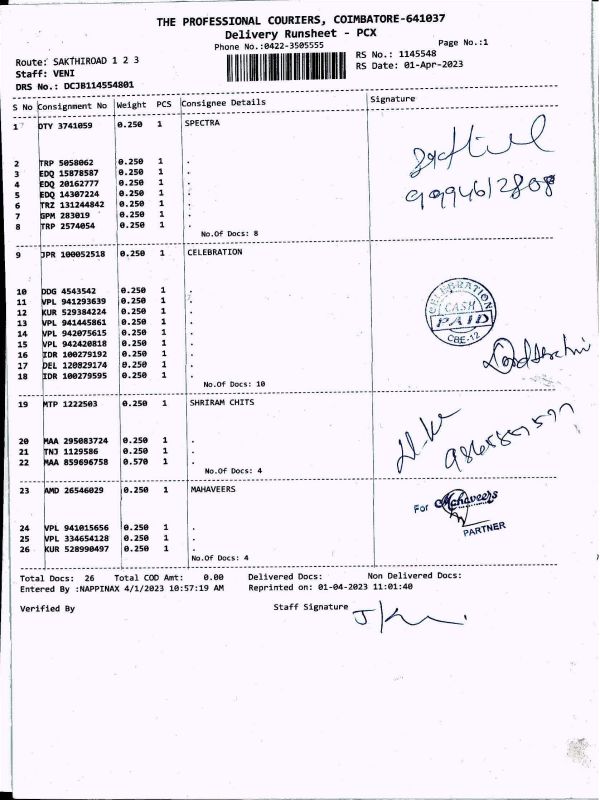 THE PROFESSIONAL COURIERS, COIMBATORE-641037
Delivery Runsheet - PCX
Phone No.:0422-3505555
Page No.:1
Route: SAKTHIROAD 1 2 3
RS No.: 1145548
Staff: VENI
RS Date: 01-Apr-2023
DRS No.: DCJB114554801
S No Consignment No Weight PCS Consignee Details Signature
1 DTY 3741059 0.250 1 SPECTRA
2 TRP 5058062 0.250 1 .
3 EDQ 15878587 0.250 1 .
4 EDQ 20162777 0.250 1 .
5 EDQ 14307224 0.250 1 .
6 TRZ 131244842 0.250 1 .
7 GPM 283019 0.250 1 .
8 TRP 2574054 0.250 1 .
9994612808
No.Of Docs: 8
9 JPR 100052518 0.250 1 CELEBRATION
10 DDG 4543542 0.250 1 .
11 VPL 941293639 0.250 1 .
12 KUR 529384224 0.250 1 .
13 VPL 941445861 0.250 1 .
14 VPL 942075615 0.250 1 .
15 VPL 942420818 0.250 1 .
16 IDR 100279192 0.250 1 .
17 DEL 120829174 0.250 1 .
18 IDR 100279595 0.250 1 .
CELEBRATION
CASH
PAID
CBE-12
No.Of Docs: 10
19 MTP 1222503 0.250 1 SHRIRAM CHITS
20 MAA 295083724 0.250 1 .
21 TNJ 1129586 0.250 1 .
22 MAA 859696758 0.570 1 .
No.Of Docs: 4
23 AMD 26546029 0.250 1 MAHAVEERS
For Mahaveers
PARTNER
24 VPL 941015656 0.250 1 .
25 VPL 334654128 0.250 1 .
26 KUR 528990497 0.250 1 .
No.Of Docs: 4
Total Docs: 26 Total COD Amt: 0.00 Delivered Docs: Non Delivered Docs:
Entered By :NAPPINAX 4/1/2023 10:57:19 AM Reprinted on: 01-04-2023 11:01:40
Verified By Staff Signature